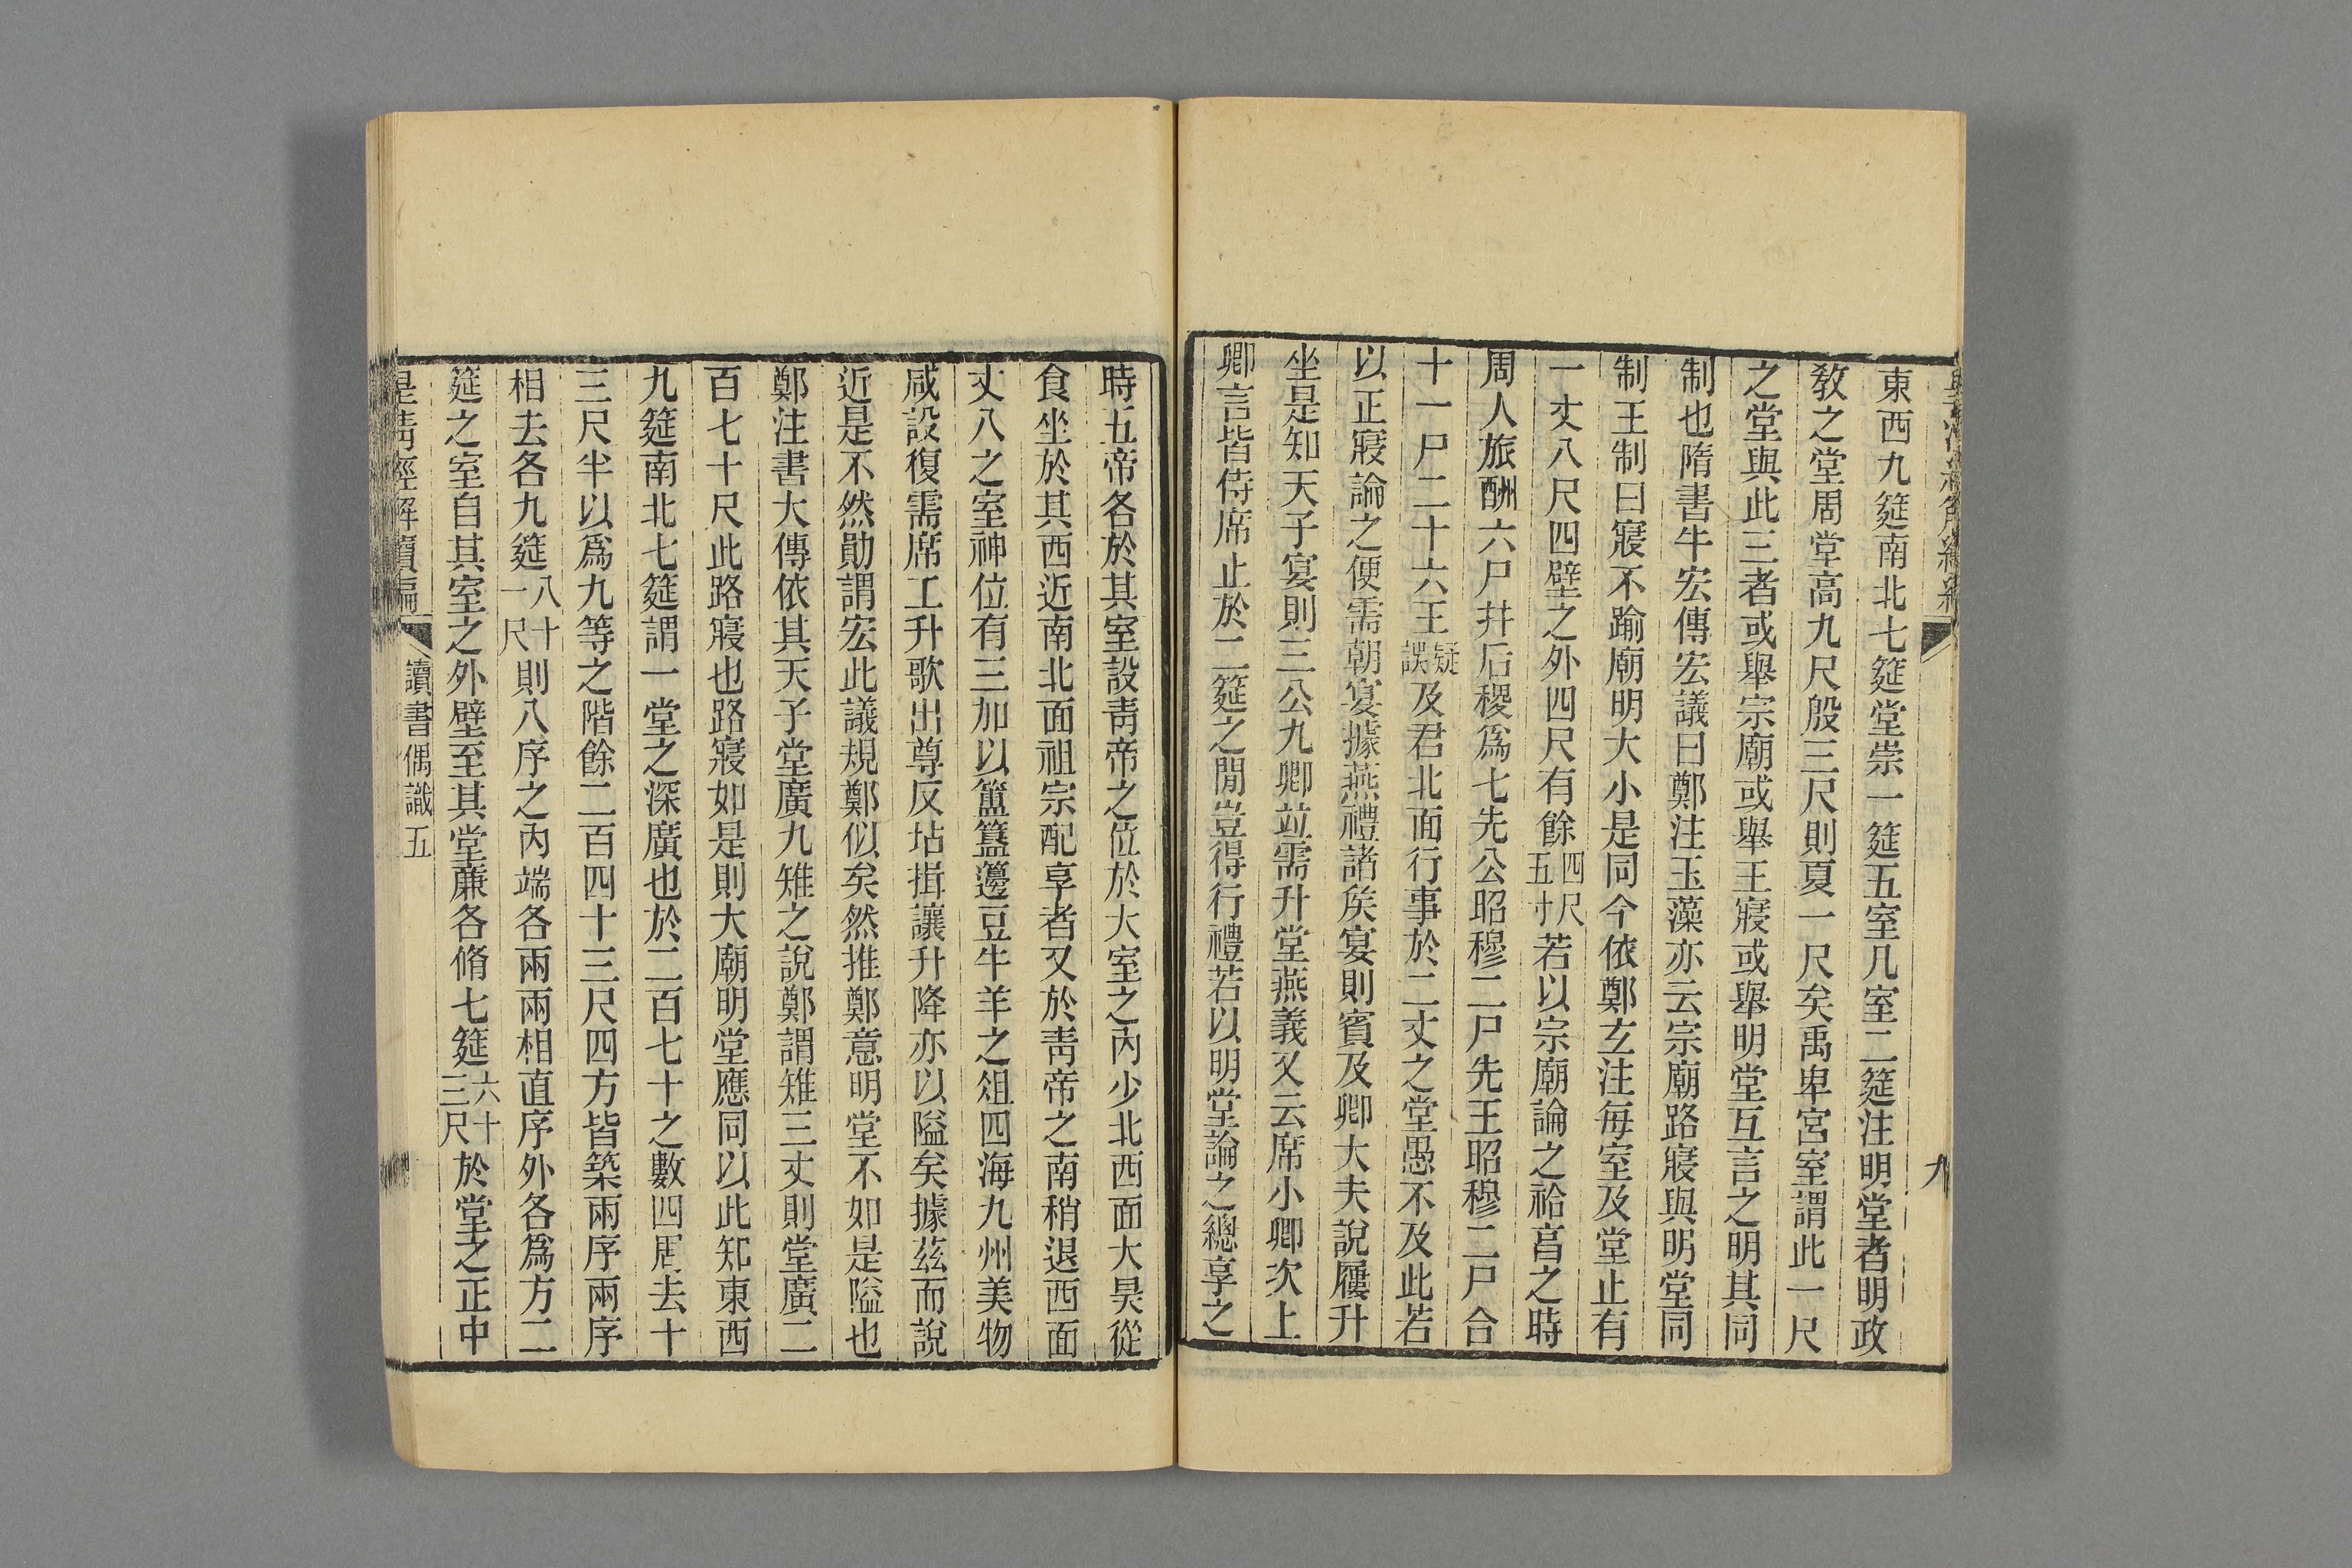 東西九筵南北七筵堂崇一筵五室凡室二筵注明堂者明政
敎之堂周堂高九尺殷三尺則夏一尺矣禹卑宮室謂此一尺
之堂與此三者或舉宗廟或舉王寢或舉明堂互言之明其同
制也隋書牛宏傳宏議曰鄭注玉藻亦云宗廟路寢與明堂同
制王制曰寢不踰廟明大小是同今依鄭玄注每室及堂止有
一丈八尺四壁之外四尺有餘四尺五寸若以宗廟論之祫亯之時
周人旅酬六尸幷后稷爲七先公昭穆二尸先王昭穆二尸合
十一尸二十六王疑誤及君北面行事於二丈之堂愚不及此若
以正寢論之便需朝宴據燕禮諸矦宴則賓及卿大夫說屨升
坐是知天子宴則三公九卿竝需升堂燕義又云席小卿次上
卿言皆侍席止於二筵之閒豈得行禮若以明堂論之總享之
時五帝各於其室設靑帝之位於大室之內少北西面大昊從
食坐於其西近南北面祖宗配享者又於靑帝之南稍退西面
丈八之室神位有三加以簠簋籩豆牛羊之俎四海九州美物
咸設復需席工升歌出尊反坫揖讓升降亦以隘矣據茲而說
近是不然勛謂宏此議規鄭似矣然推鄭意明堂不如是隘也
鄭注書大傳依其天子堂廣九雉之說鄭謂雉三丈則堂廣二
百七十尺此路寢也路寢如是則大廟明堂應同以此知東西
九筵南北七筵謂一堂之深廣也於二百七十之數四周去十
三尺半以爲九等之階餘二百四十三尺四方皆築兩序兩序
相去各九筵八十一尺則八序之內端各兩兩相直序外各爲方二
筵之室自其室之外壁至其堂廉各脩七筵六十三尺於堂之正中
皇淸經解續編
讀書偶識五
九